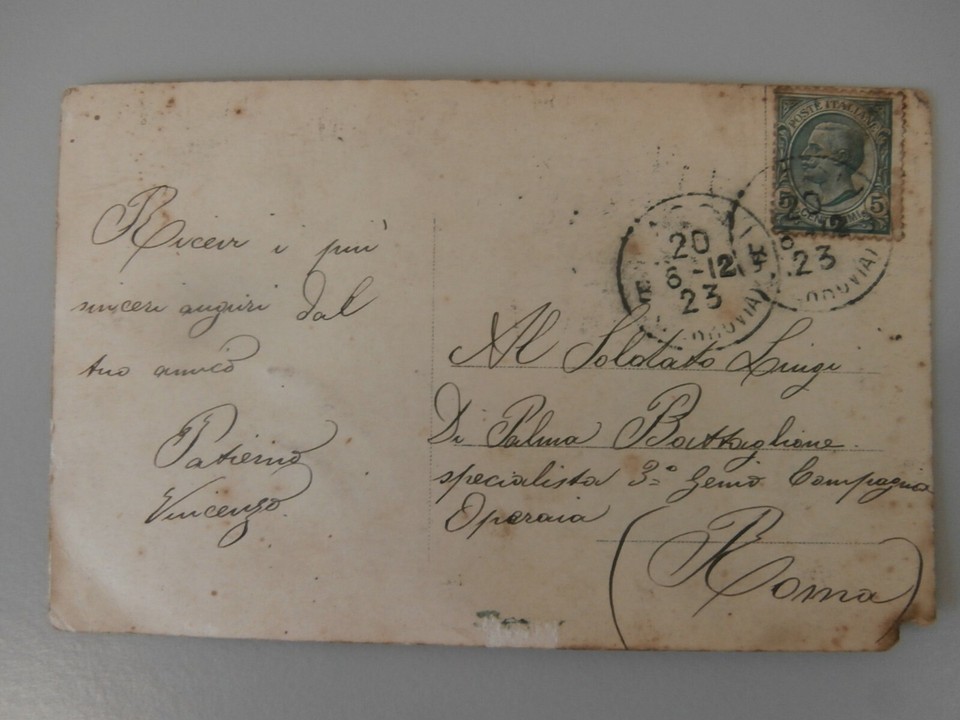 Ricevi i più
sinceri auguri dal
tuo amico
Patierno
Vincenzo
POSTE ITALIANE
5 5
CENTESIMI
20
6-12
23
12
23
Al Soldato Luigi
Di Palma Battaglione
specialista 3º Genio Compagnia
Operaia
(Roma)